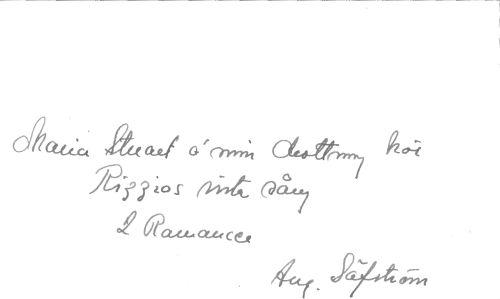 Maria Stuart o' min drottning hör
Rizzios sista sång
2 Romancer
Aug. Säfström